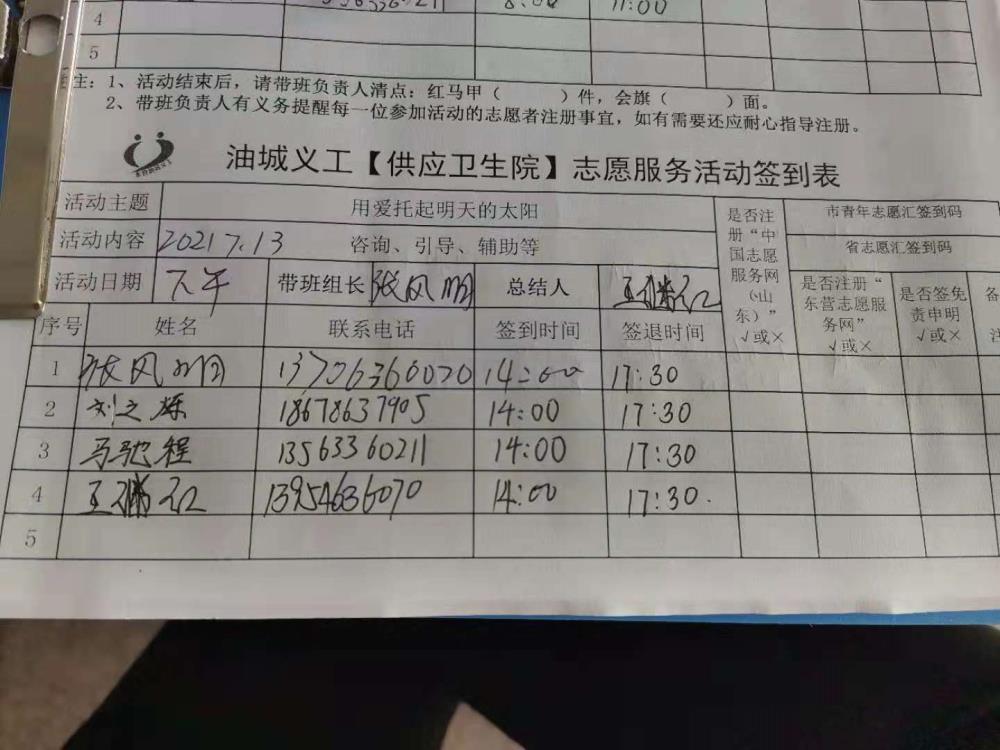 8:00 11:00
4
5
注：1、活动结束后，请带班负责人清点：红马甲（ ）件，会旗（ ）面。
2、带班负责人有义务提醒每一位参加活动的志愿者注册事宜，如有需要还应耐心指导注册。
油城义工【供应卫生院】志愿服务活动签到表
活动主题 用爱托起明天的太阳 是否注册“中国志愿服务网（山东）”√或× 市青年志愿汇签到码
活动内容 2021 7.13 咨询、引导、辅助等 省志愿汇签到码
活动日期 下午 带班组长 张风明 总结人 是否注册“东营志愿服务网”√或× 是否签免责申明√或× 备注
序号 姓名 联系电话 签到时间 签退时间
1 张风明 13706360070 14:00 17:30
2 刘之栋 18678637905 14:00 17:30
3 马驰程 13563360211 14:00 17:30
4 13954636070 14:00 17:30.
5